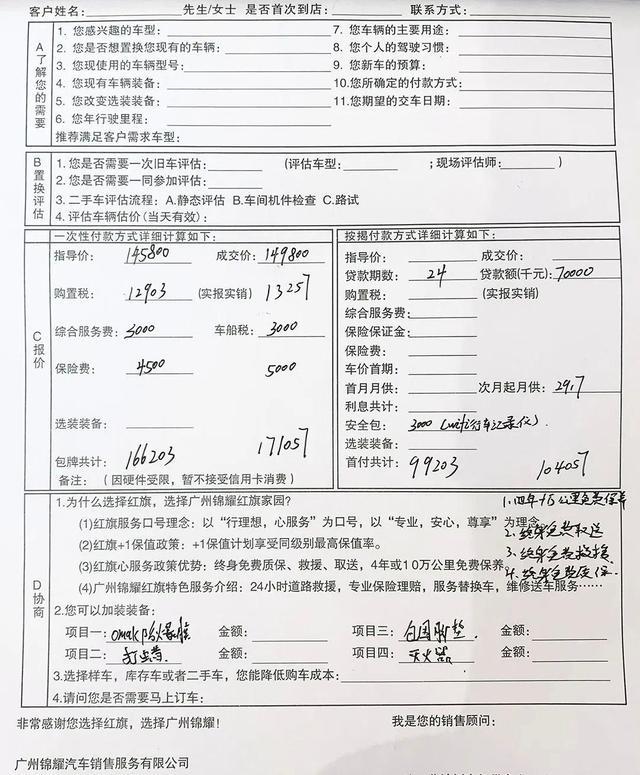 客户姓名: 先生/女士 是否首次到店: 联系方式:
A 了解您的需要
1. 您感兴趣的车型:
2. 您是否想置换您现有的车辆:
3. 您现使用的车辆型号:
4. 您现有车辆装备:
5. 您改变选装装备:
6. 您年行驶里程:
推荐满足客户需求车型:
7. 您车辆的主要用途:
8. 您个人的驾驶习惯:
9. 您新车的预算:
10.您所确定的付款方式:
11.您期望的交车日期:
B 置换评估
1. 您是否需要一次旧车评估: (评估车型: ;现场评估师: )
2. 您是否需要一同参加评估:
3. 二手车评估流程: A.静态评估 B.车间机件检查 C.路试
4. 评估车辆估价(当天有效):
C 报价
一次性付款方式详细计算如下:
指导价: 145800 成交价: 149800
购置税: 12903 (实报实销) 13257
综合服务费: 3000 车船税: 3000
保险费: 4500 5000
选装装备:
包牌共计: 166203 171057
备注: (因硬件受限,暂不接受信用卡消费)
按揭付款方式详细计算如下:
指导价: 成交价:
贷款期数: 24 贷款额(千元): 70000
购置税: (实报实销)
综合服务费:
保险保证金:
保险费:
车价首期:
首月月供: 次月起月供: 2917
利息共计:
安全包: 3000 (wifi行车记录仪)
选装装备:
首付共计: 99203 104057
D 协商
1.为什么选择红旗,选择广州锦耀红旗家园?
(1)红旗服务口号理念: 以“行理想,心服务”为口号,以“专业,安心,尊享”为理念
(2)红旗+1保值政策: +1保值计划享受同级别最高保值率。
(3)红旗心服务政策优势: 终身免费质保、救援、取送,4年或10万公里免费保养。
(4)广州锦耀红旗特色服务介绍: 24小时道路救援,专业保险理赔,服务替换车,维修送车服务……
1.四年十万公里免费保养
2.终身免费取送
3.终身免费救援
4.终身免费质保
2.您可以加装装备:
项目一: 金额: 项目三: 包围脚垫 金额:
项目二: 金额: 项目四: 灭火器 金额:
3.选择样车,库存车或者二手车,您能降低购车成本:
4.请问您是否需要马上订车:
非常感谢您选择红旗,选择广州锦耀! 我是您的销售顾问:
广州锦耀汽车销售服务有限公司